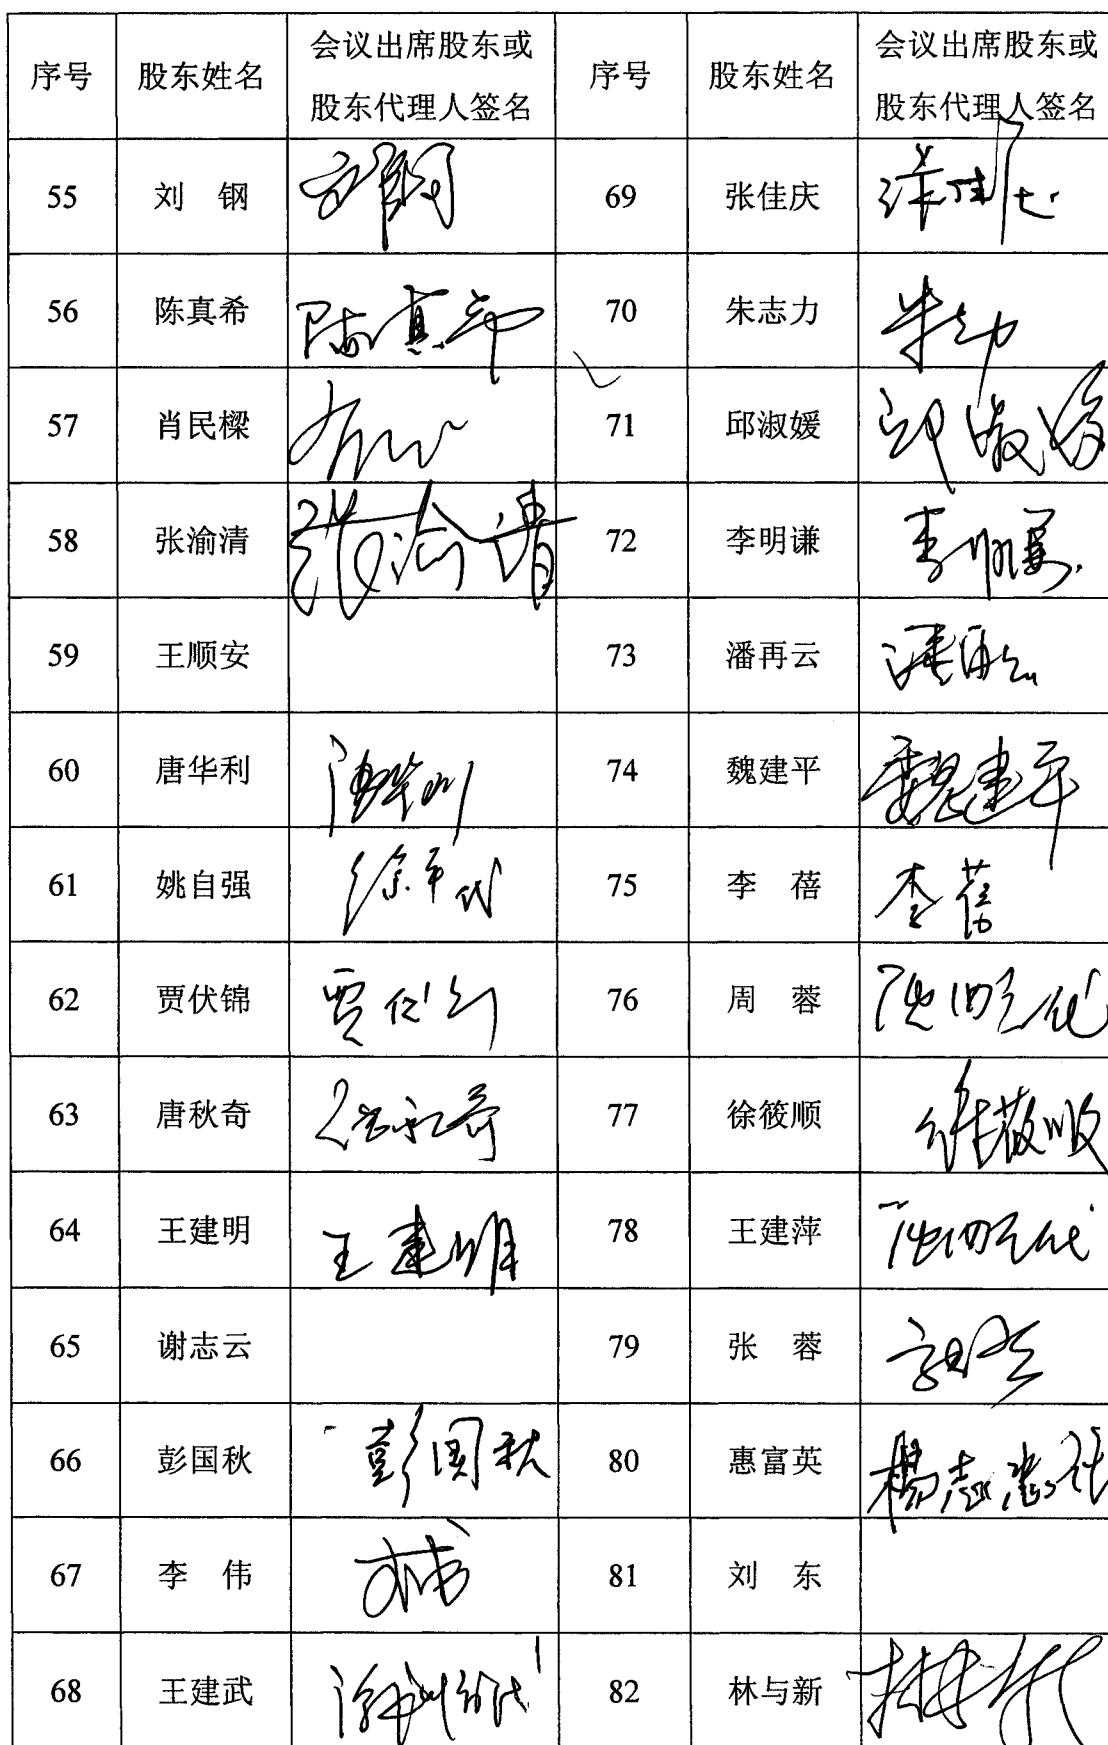 序号 股东姓名 会议出席股东或股东代理人签名 序号 股东姓名 会议出席股东或股东代理人签名
55 刘 钢 刘钢 69 张佳庆
56 陈真希 陈真希 70 朱志力 朱志力
57 肖民樑 71 邱淑媛 邱淑媛
58 张渝清 张渝清 72 李明谦
59 王顺安 73 潘再云 潘再云
60 唐华利 唐华利 74 魏建平 魏建平
61 姚自强 徐平代 75 李 蓓 李蓓
62 贾伏锦 贾伏锦 76 周 蓉
63 唐秋奇 77 徐筱顺 徐筱顺
64 王建明 王建明 78 王建萍
65 谢志云 79 张 蓉
66 彭国秋 彭国秋 80 惠富英
67 李 伟 81 刘 东
68 王建武 82 林与新